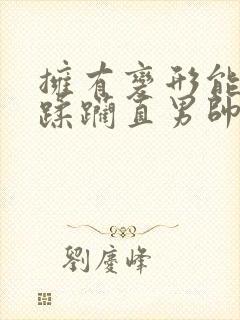 擁有變形能
蹂躪直男帥
劉慶峰